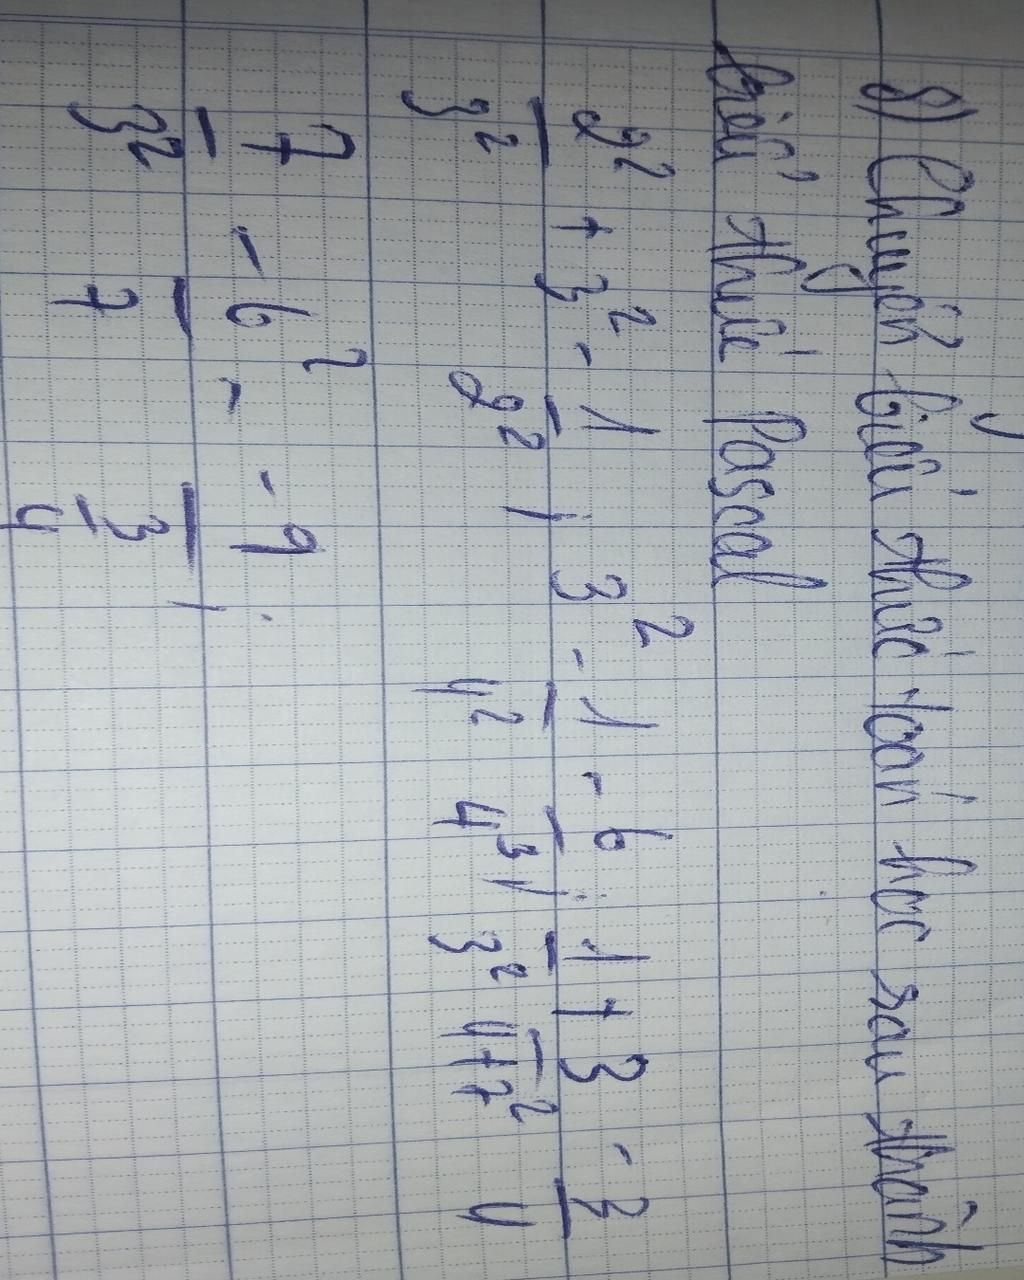 8) Chuyển biểu thức toán học sau thành
biểu thức Pascal
2²/3² + 3² - 1/2² ; 3² - 1/4² - 6/4³ ; 1/3² + 3/4+7² - 3/4
7/3² - 6²/7 - -9/3/4 ;